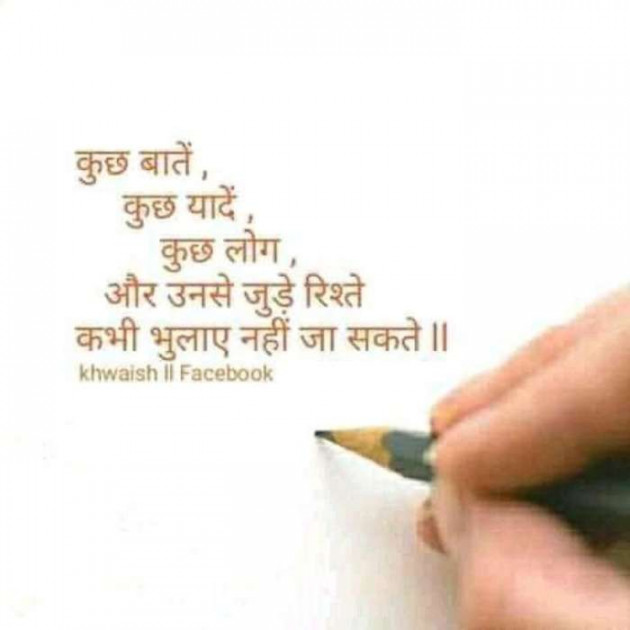 कुछ बातें ,
कुछ यादें ,
कुछ लोग ,
और उनसे जुड़े रिश्ते
कभी भुलाए नहीं जा सकते ll
khwaish ll Facebook